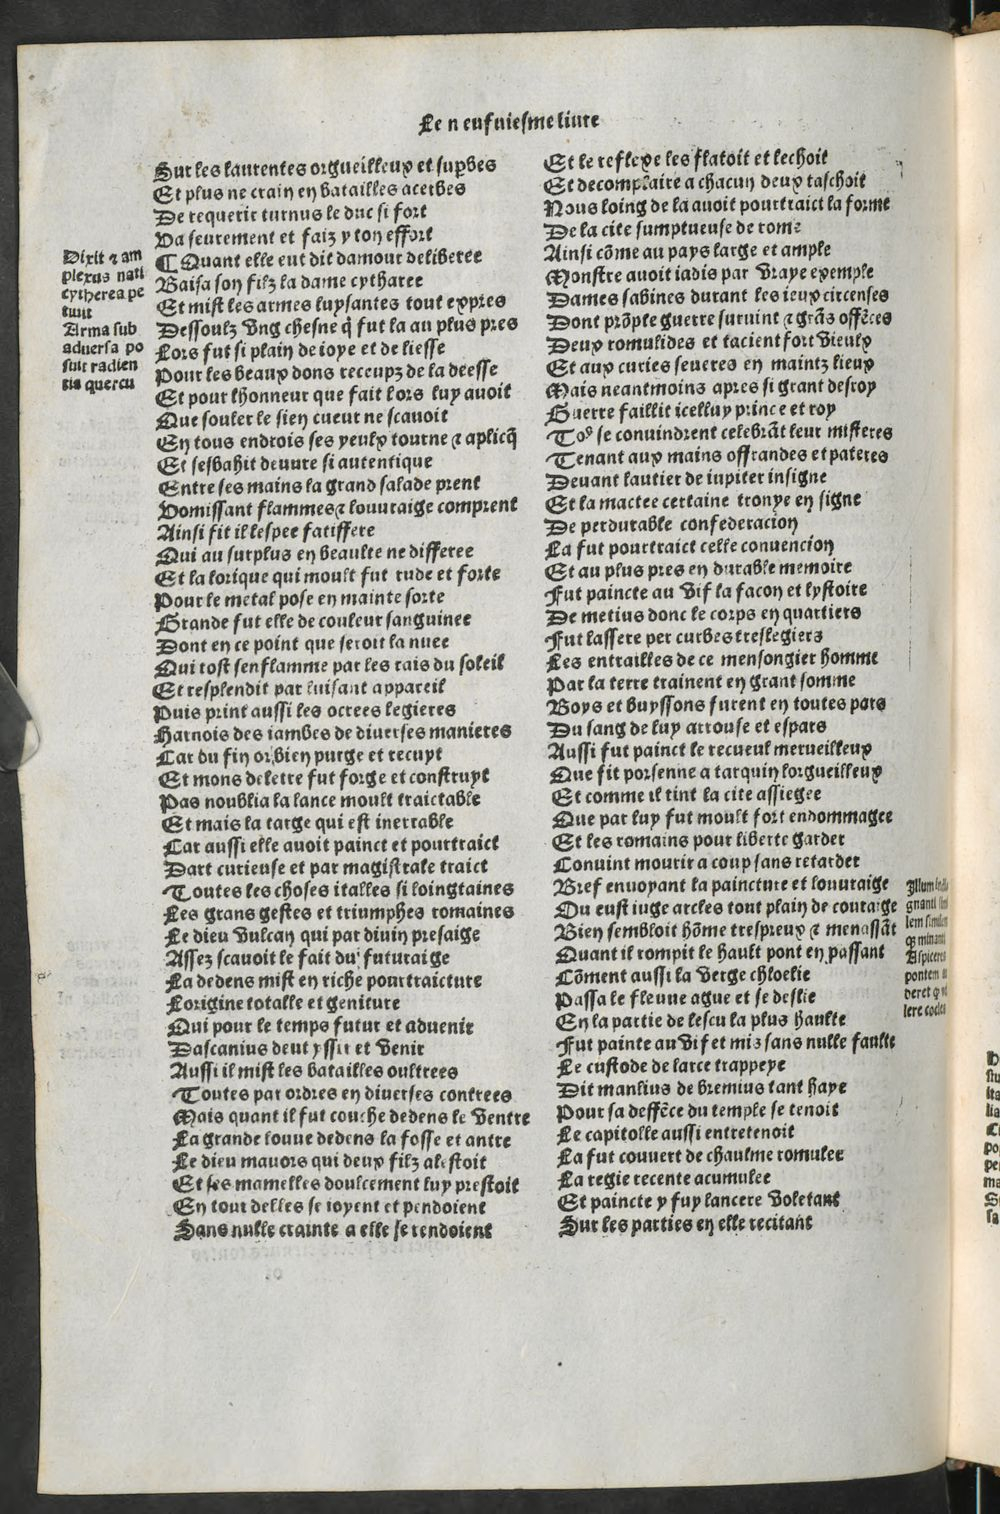 Le n eufuiesme liure
Sur les laurentes orgueilleux et supbes
Et plus ne crain en batailles acerbes
De requerir turnus le duc si fort
Va seurement et faiz y ton effort
¶ Quant elle eut dit damour deliberee
Baisa son filz la dame cytharee
Et mist les armes luysantes tout expres
Dessoulz vng chesne q̃ fut la au plus pres
Lors fut si plain de ioye et de liesse
Pour les beaux dons receupz de la deesse
Et pour lhonneur que fait lors luy auoit
Que souler le sien cueur ne scauoit
En tous endrois ses yeulx tourne ⁊ aplicq̃
Et sesbahit deuure si autentique
Entre ses mains la grand salade prent
Vomissant flammes⁊ louuraige comprent
Ainsi fit il lespee fatiffere
Qui au surplus en beaulte ne differee
Et la lorique qui moult fut rude et forte
Pour le metal pose en mainte sorte
Grande fut elle de couleur sanguinee
Dont en ce point que seroit la nuee
Qui tost senflamme par les rais du soleil
Et resplendit par luisant appareil
Puis print aussi les ocrees legieres
Harnois des iambes de diuerses manieres
Car du fin or bien purge et recuyt
Et mons delettre fut forge et construyt
Pas noublia la lance moult traictable
Et mais la targe qui est inerrable
Car aussi elle auoit painct et pourtraict
Dart curieuse et par magistrale traict
Toutes les choses italles si loingtaines
Les grans gestes et triumphes romaines
Le dieu Vulcan qui par diuin presaige
Assez scauoit le fait du futuraige
La dedens mist en riche pourtraicture
Lorigine totalle et geniture
Qui pour le temps futur et aduenir
Dascanius deut yssir et venir
Aussi il mist les batailles oultrees
Toutes par ordres en diuerses contrees
Mais quant il fut couche dedens le ventre
La grande louue dedens la fosse et antre
Le dieu mauors qui deux filz alestoit
Et ses mamelles doulcement luy prestoit
En tour delles se ioyent et pendoient
Sans nulle crainte a elle se rendoient
Dixit ⁊ am
plexus nati
cytherea pe
tiuit
Arma sub
aduersa po
suit radien
tia quercu
Et le reflexe les flatoit et lechoit
Et decomplaire a chacun deux taschoit
Nous loing de la auoit pourtraict la forme
De la cite sumptueuse de rome
Ainsi cõme au pays large et ample
Monstre auoit iadis par vraye exemple
Dames sabines durant les ieux circenses
Dont prõpte guerre suruint ⁊ grãs offẽces
Deux romulides et tacient fort vieulx
Et aux curies seueres en maintz lieux
Mais neantmoins apres si grant desroy
Guerre faillit icelluy prince et roy
To⁹ se conuindrent celebrãt leur misteres
Tenant aux mains offrandes et pateres
Deuant lautier de iupiter insigne
Et la mactee certaine tronye en signe
De perdurable confederacion
La fut pourtraict celle conuencion
Et au plus pres en durable memoire
Fut paincte au vif la facon et lystoire
De metius donc le corps en quartiers
Fut lassere per curbes treslegiers
Les entrailles de ce mensongier homme
Par la terre trainent en grant somme
Boys et buyssons furent en toutes pars
Du sang de luy arrouse et espars
Aussi fut painct le recueul merueilleux
Que fit porsenne a tarquin lorgueilleux
Et comme il tint la cite assiegee
Que par luy fut moult fort endommagee
Et les romains pour liberte garder
Conuint mourir a coup sans retarder
Bref enuoyant la paincture et louuraige
Ou eust iuge arcles tout plain de couraige
Bien sembloit hõme trespreux ⁊ menassãt
Quant il rompit le hault pont en passant
Cõment aussi la vierge chloelie
Passa le fleuue ague et se deslie
En la partie de lescu la plus haulte
Fut painte au vif et mis sans nulle faulte
Le custode de larce trappeye
Dit manlius de bremius tant haye
Pour sa deffẽce du temple se tenoit
Le capitolle aussi entretenoit
La fut couuert de chaulme romulee
La regie recente acumulee
Et paincte y fuy lancere voletant
Sur les parties en elle recitant
Illum
gnanti
lem
minanti
Aspiceres
pontem
deret
lere cocles